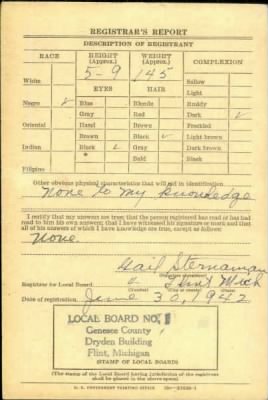 REGISTRAR'S REPORT
DESCRIPTION OF REGISTRANT
RACE HEIGHT (Approx.) WEIGHT (Approx.) COMPLEXION
5-9 145
White Sallow
EYES HAIR Light
Negro ✓ Blue Blonde Ruddy
Gray Red Dark ✓
Oriental Hazel Brown Freckled
Brown Black ✓ Light brown
Indian Black ✓ Gray Dark brown
Bald Black
Filipino
Other obvious physical characteristics that will aid in identification
None to my knowledge
I certify that my answers are true; that the person registered has read or has had
read to him his own answers; that I have witnessed his signature or mark and that
all of his answers of which I have knowledge are true, except as follows:
None
Gail Sternaman
Registrar for Local Board 1 Flint Mich
Date of registration June 30, 1942
LOCAL BOARD NO. 1
Genesee County
Dryden Building
Flint, Michigan
(STAMP OF LOCAL BOARD)
(The stamp of the Local Board having jurisdiction of the registrant
shall be placed in the above space)
U. S. GOVERNMENT PRINTING OFFICE